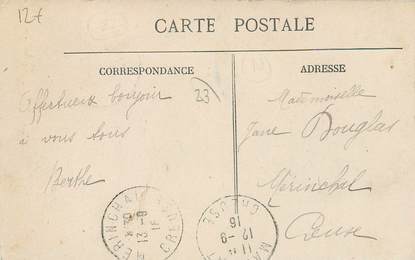 12€
CARTE POSTALE
CORRESPONDANCE
ADRESSE
Affectueux bonjour
à vous tous
Berthe
23
Mademoiselle
Jane Douglas
Mérinchal
Creuse
MERINCHAL
13-9
16
CREUSE
11
12-9
16
CREUSE